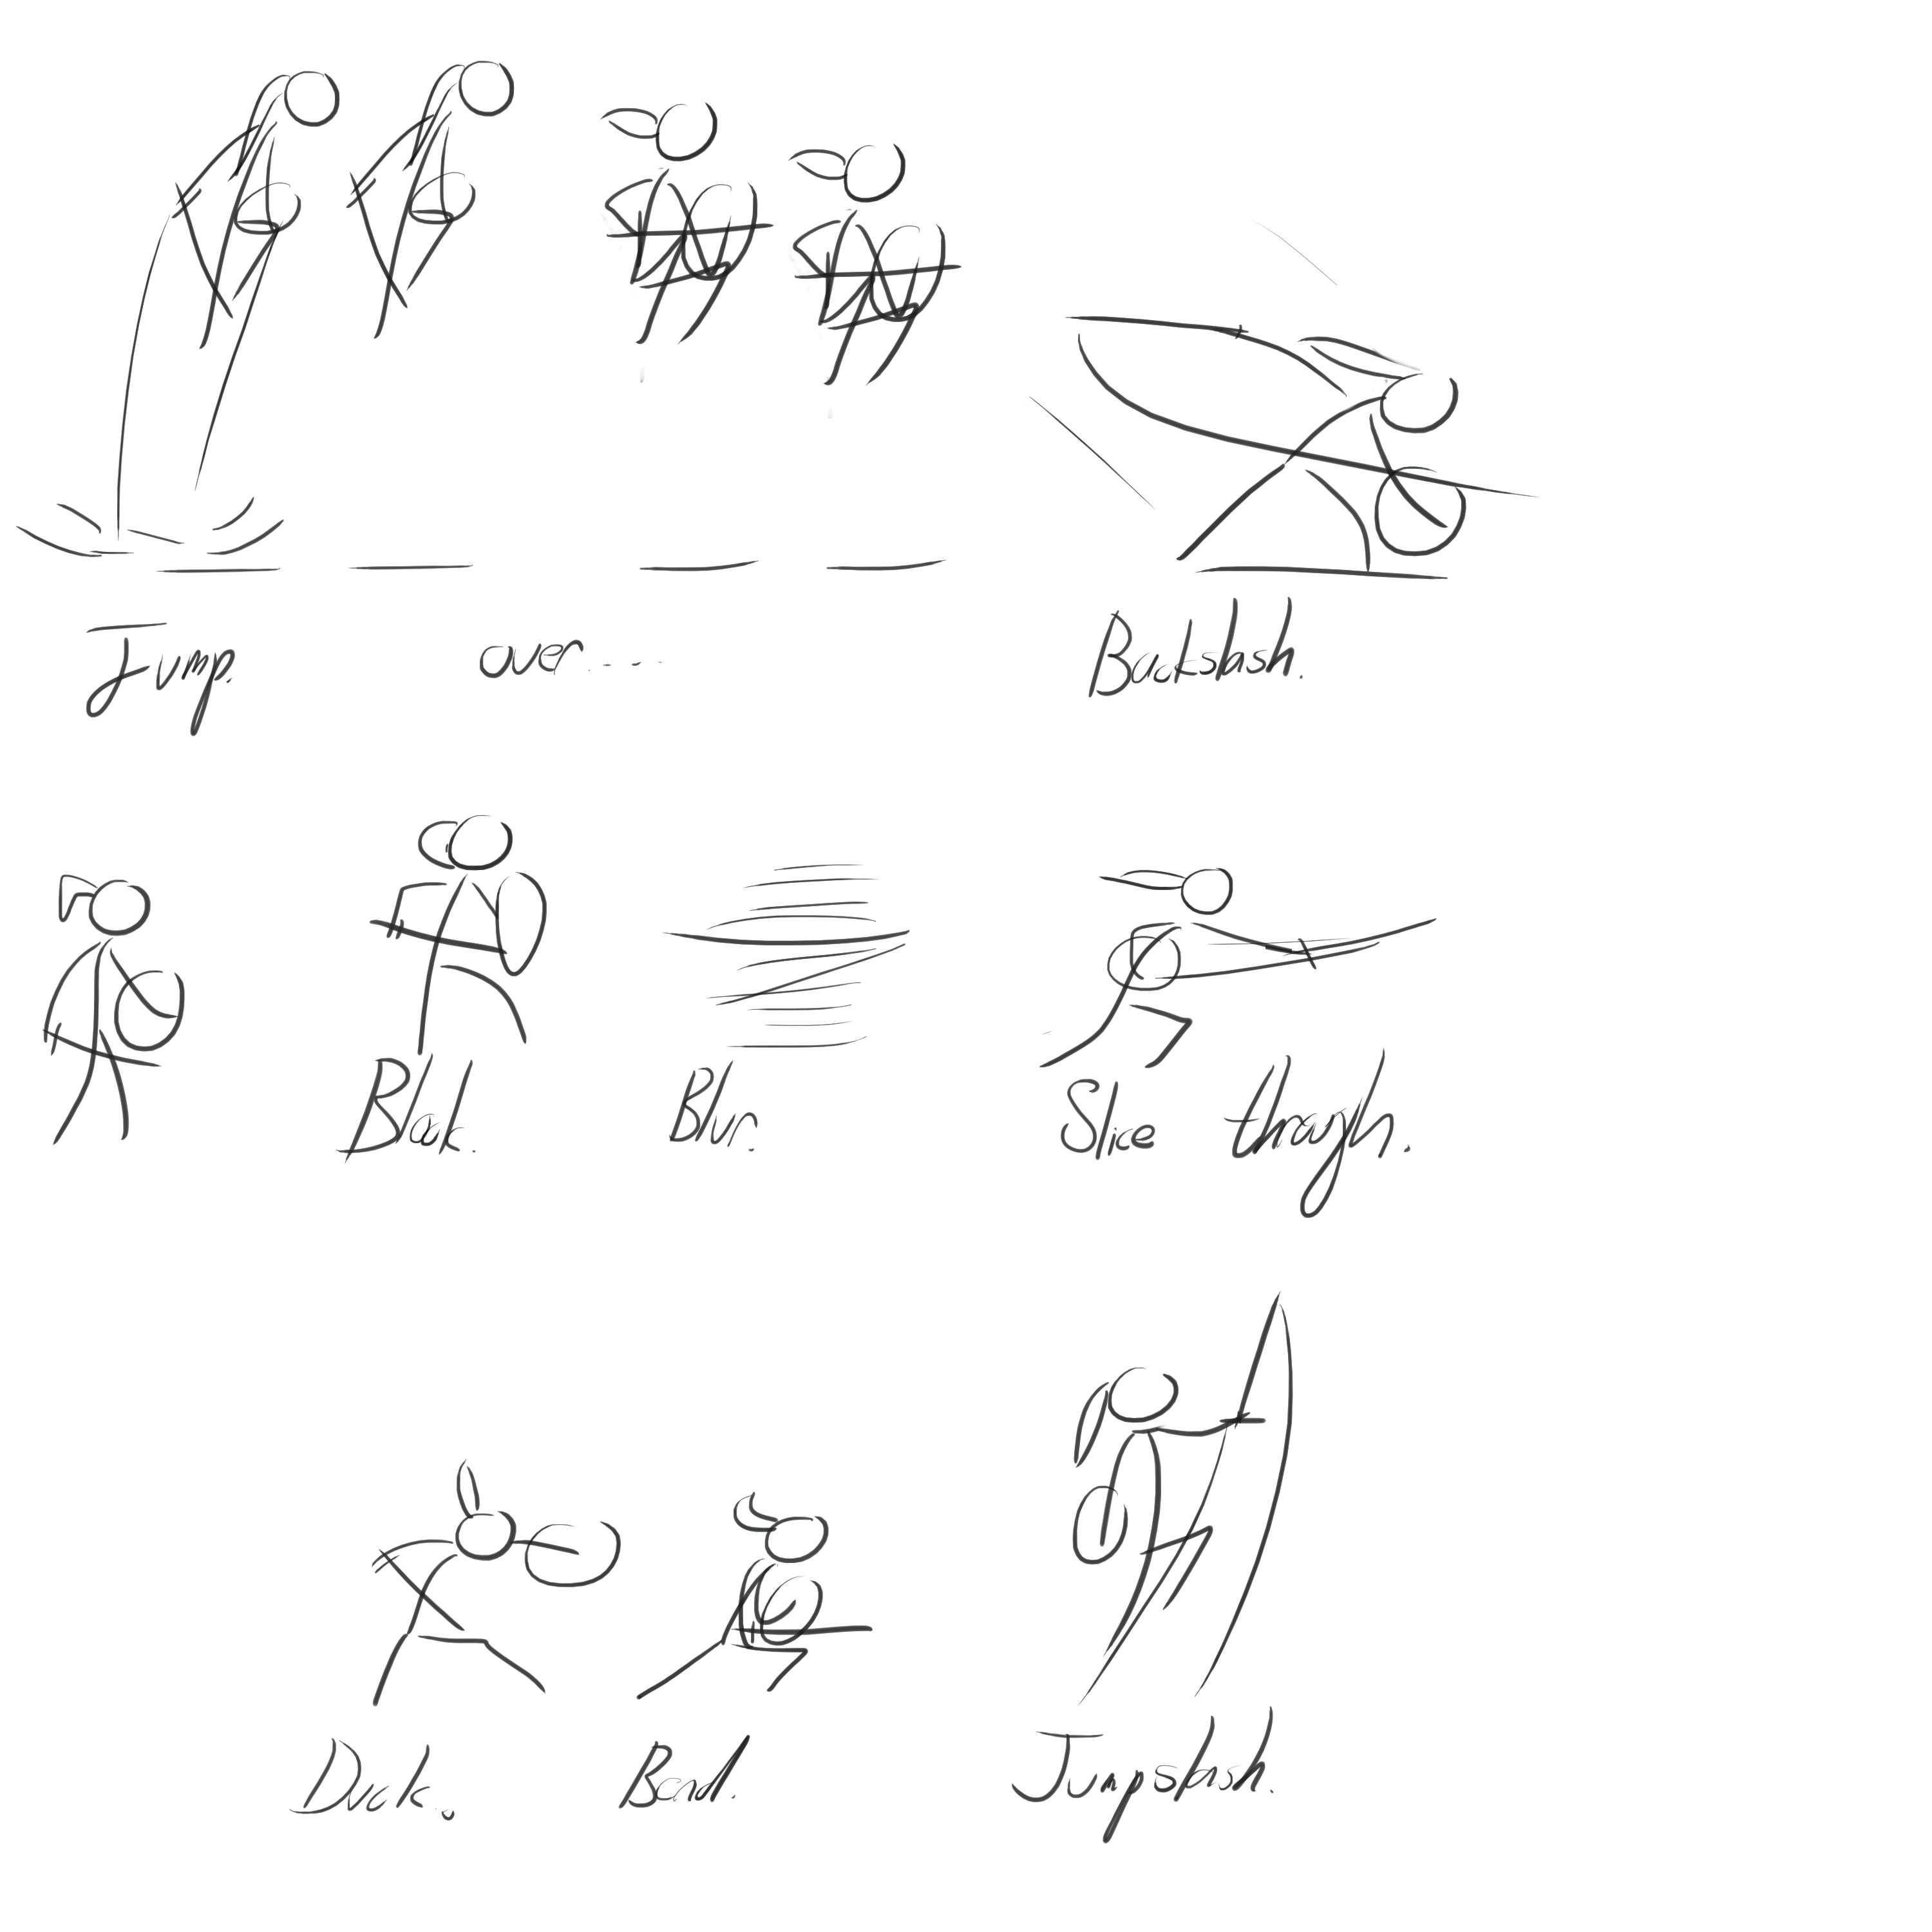 Jump. over.... Backslash.
Block. Blur. Slice through.
Duck.. Bend. Jumpslash.